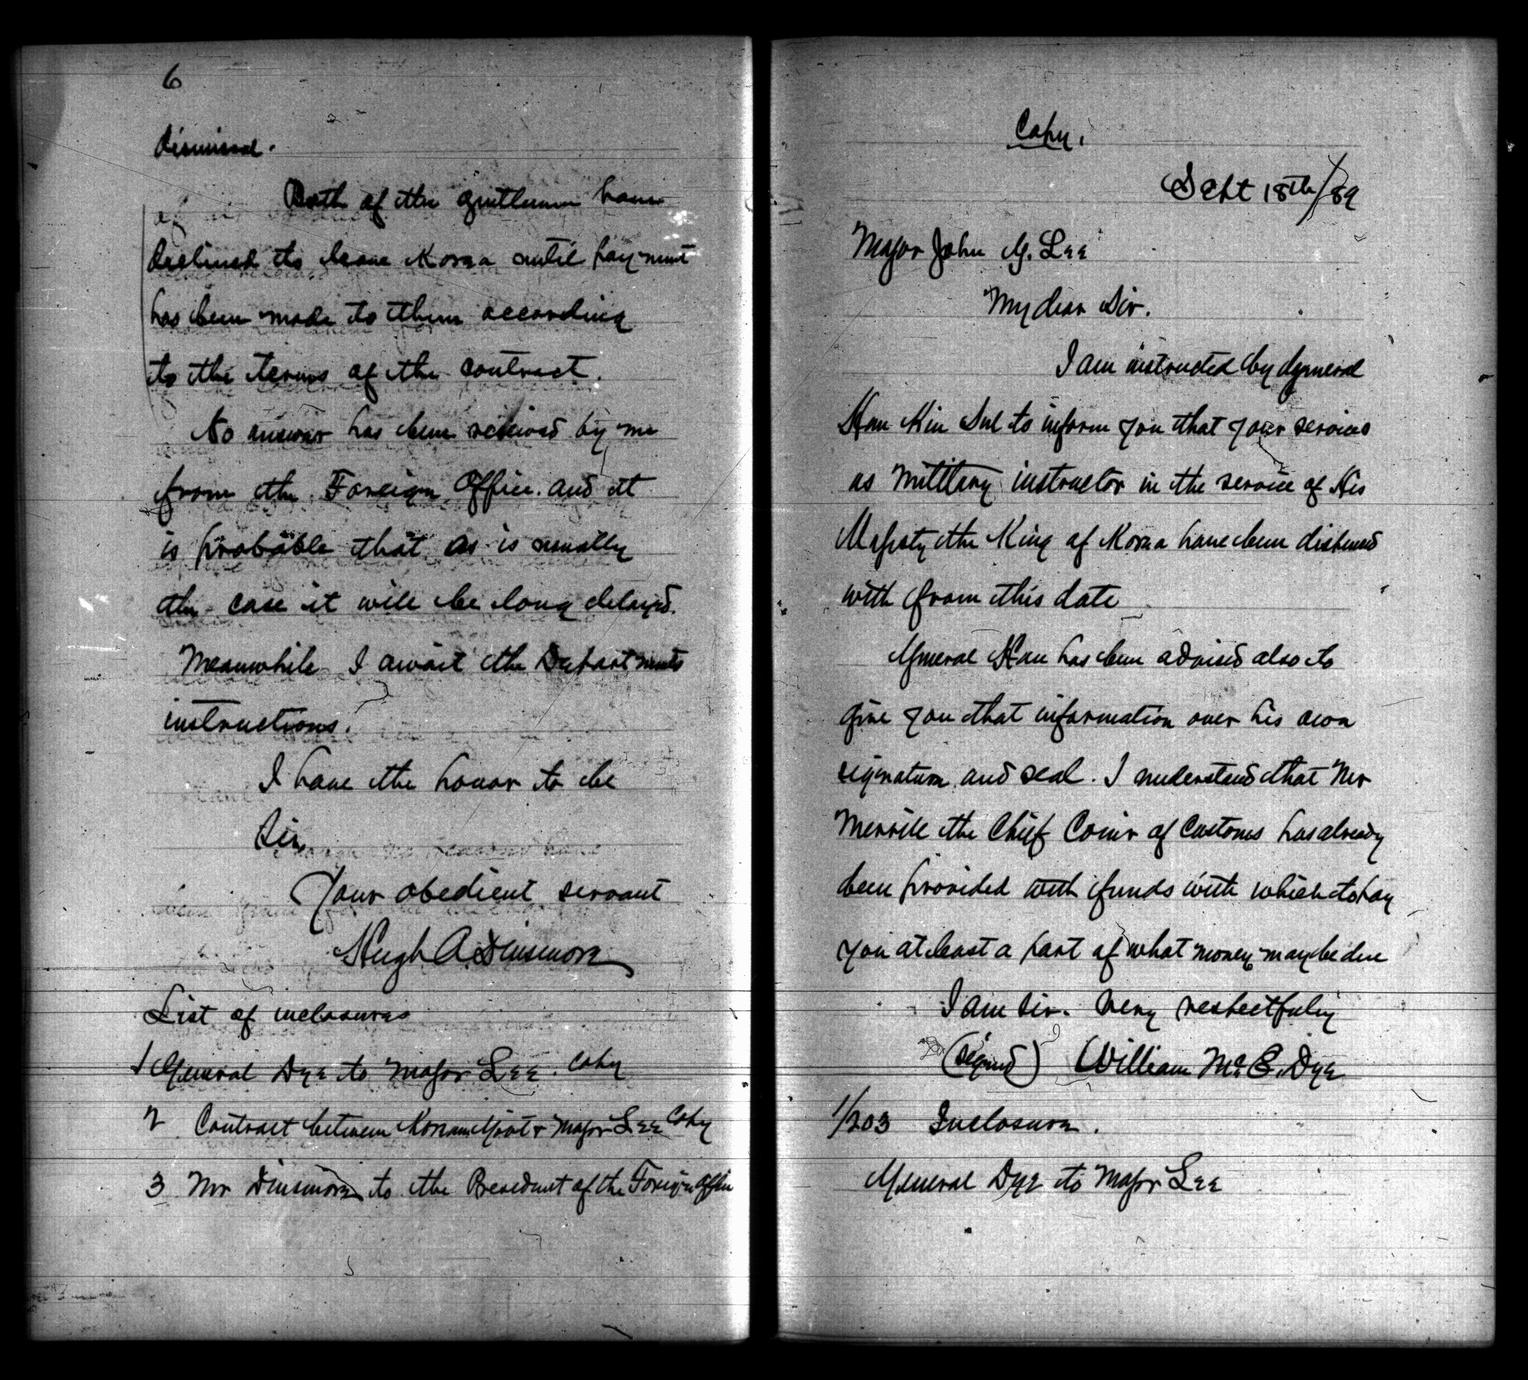 6
dismissal.
Both of the gentlemen have
declined to leave Korea until payment
has been made to them according
to the terms of the contract.
No answer has been received by me
from the Foreign Office. and it
is probable that as is usually
the case it will be long delayed.
Meanwhile I await the Departments
instructions.
I have the honor to be
Sir,
Your obedient servant
Hugh A. Dinsmore
List of inclosures
1 General Dye to Major Lee. Copy
2 Contract between Korean Govt & Major Lee Copy
3 Mr Dinsmore to the President of the Foreign Office
Copy.
Sept 18th/89
Major John G. Lee
My dear Sir.
I am instructed by General
Han Kiu Sul to inform you that your services
as Military instructor in the service of His
Majesty the King of Korea have been dispensed
with from this date
General Han has been advised also to
give you that information over his own
signature and seal. I understand that Mr
Merrill the Chief Comr of Customs has already
been provided with funds with which to pay
you at least a part of what money may be due
I am Sir. Very respectfully
(signed) William McE. Dye
1/203 Inclosure.
General Dye to Major Lee